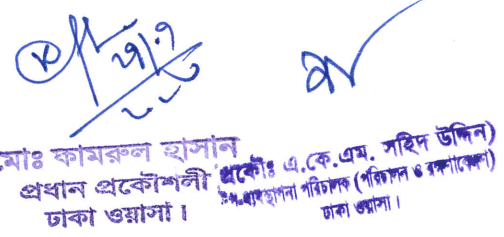 মোঃ কামরুল হাসান
প্রধান প্রকৌশলী
ঢাকা ওয়াসা।
প্রকৌঃ এ.কে.এম. সহিদ উদ্দিন)
ব্যবস্থাপনা পরিচালক (পরিচালন ও রক্ষণাবেক্ষণ)
ঢাকা ওয়াসা।